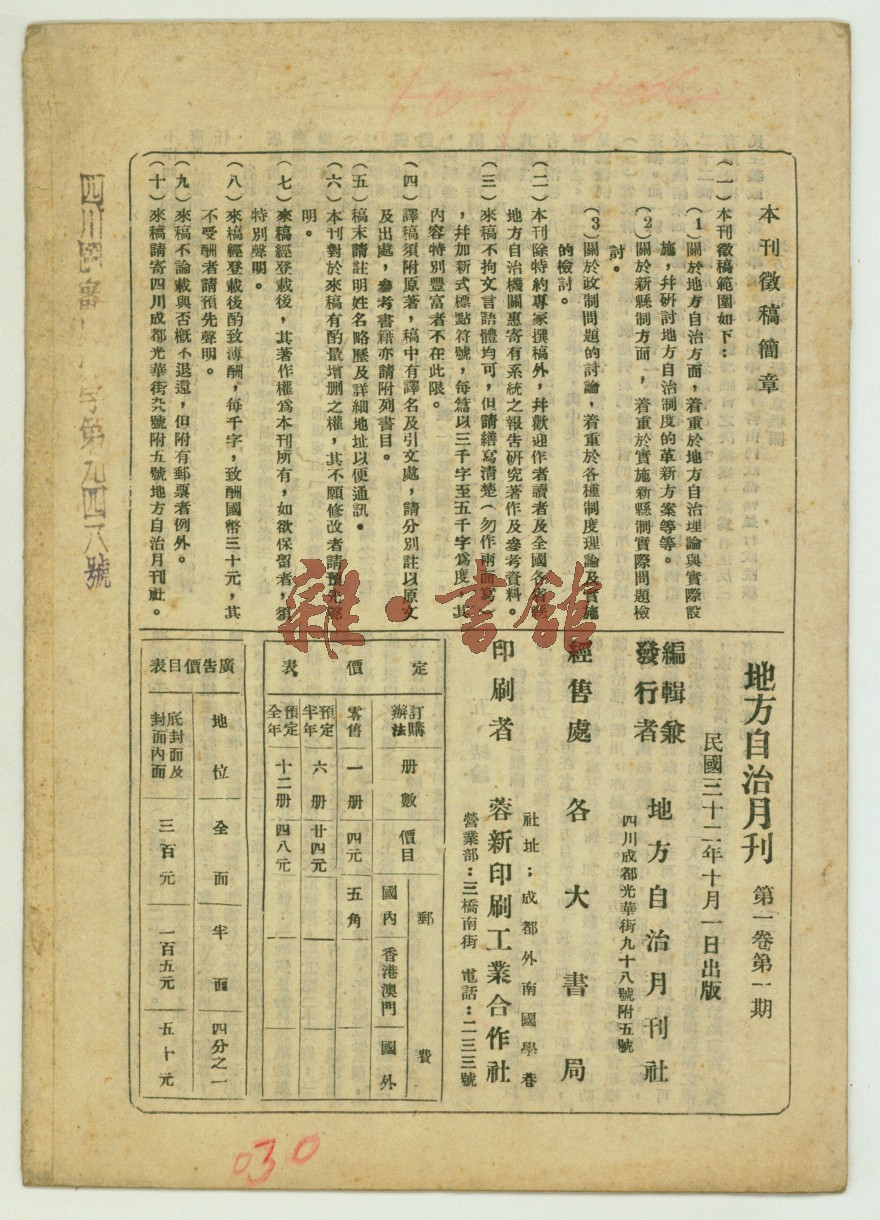 本刊徵稿簡章
(一)本刊徵稿範圍如下：
(1)關於地方自治方面，着重於地方自治理論與實際設
施，幷研討地方自治制度的革新方案等等。
(2)關於新縣制方面，着重於實施新縣制實際問題檢
討。
(3)關於政制問題的討論，着重於各種制度理論及實施
的檢討。
(二)本刊除特約專家撰稿外，幷歡迎作者讀者及全國各省縣
地方自治機關惠寄有系統之報告研究著作及參考資料。
(三)來稿不拘文言語體均可，但請繕寫清楚(勿作兩面寫)
，幷加新式標點符號，每篇以三千字至五千字爲度，其
內容特別豐富者不在此限。
(四)譯稿須附原著，稿中有譯名及引文處，請分別註以原文
及出處，參考書籍亦請附列書目。
(五)稿末請註明姓名略歷及詳細地址以便通訊。
(六)本刊對於來稿有酌量增删之權，其不願修改者請預先聲
明。
(七)來稿經登載後，其著作權爲本刊所有，如欲保留者，須
特別聲明。
(八)來稿經登載後酌致薄酬，每千字，致酬國幣三十元，其
不受酬者請預先聲明。
(九)來稿不論載與否槪不退還，但附有郵票者例外。
(十)來稿請寄四川成都光華街九號附五號地方自治月刊社。
地方自治月刊 第一卷第一期
民國三十二年十月一日出版
編輯兼
發行者 地方自治月刊社
四川成都光華街九十八號附五號
經售處 各大書局
社址：成都外南國學巷
印刷者 蓉新印刷工業合作社
營業部：三橋南街 電話：二三三號
定價表
訂購辦法 册數 價目 郵費
國內 香港澳門 國外
零售 一册 四元 五角
預定半年 六册 廿四元
預定全年 十二册 四八元
廣告價目表
地位 全面 半面 四分之一
底封面及封面內面 三百元 一百五元 五十元
四川圖審 字第九四八號
030
雜·書舘